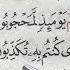 يَوْمَئِذٍ لَّمَحْجُوبُونَ
كُنتُم بِهِۦ تُكَذِّبُونَ